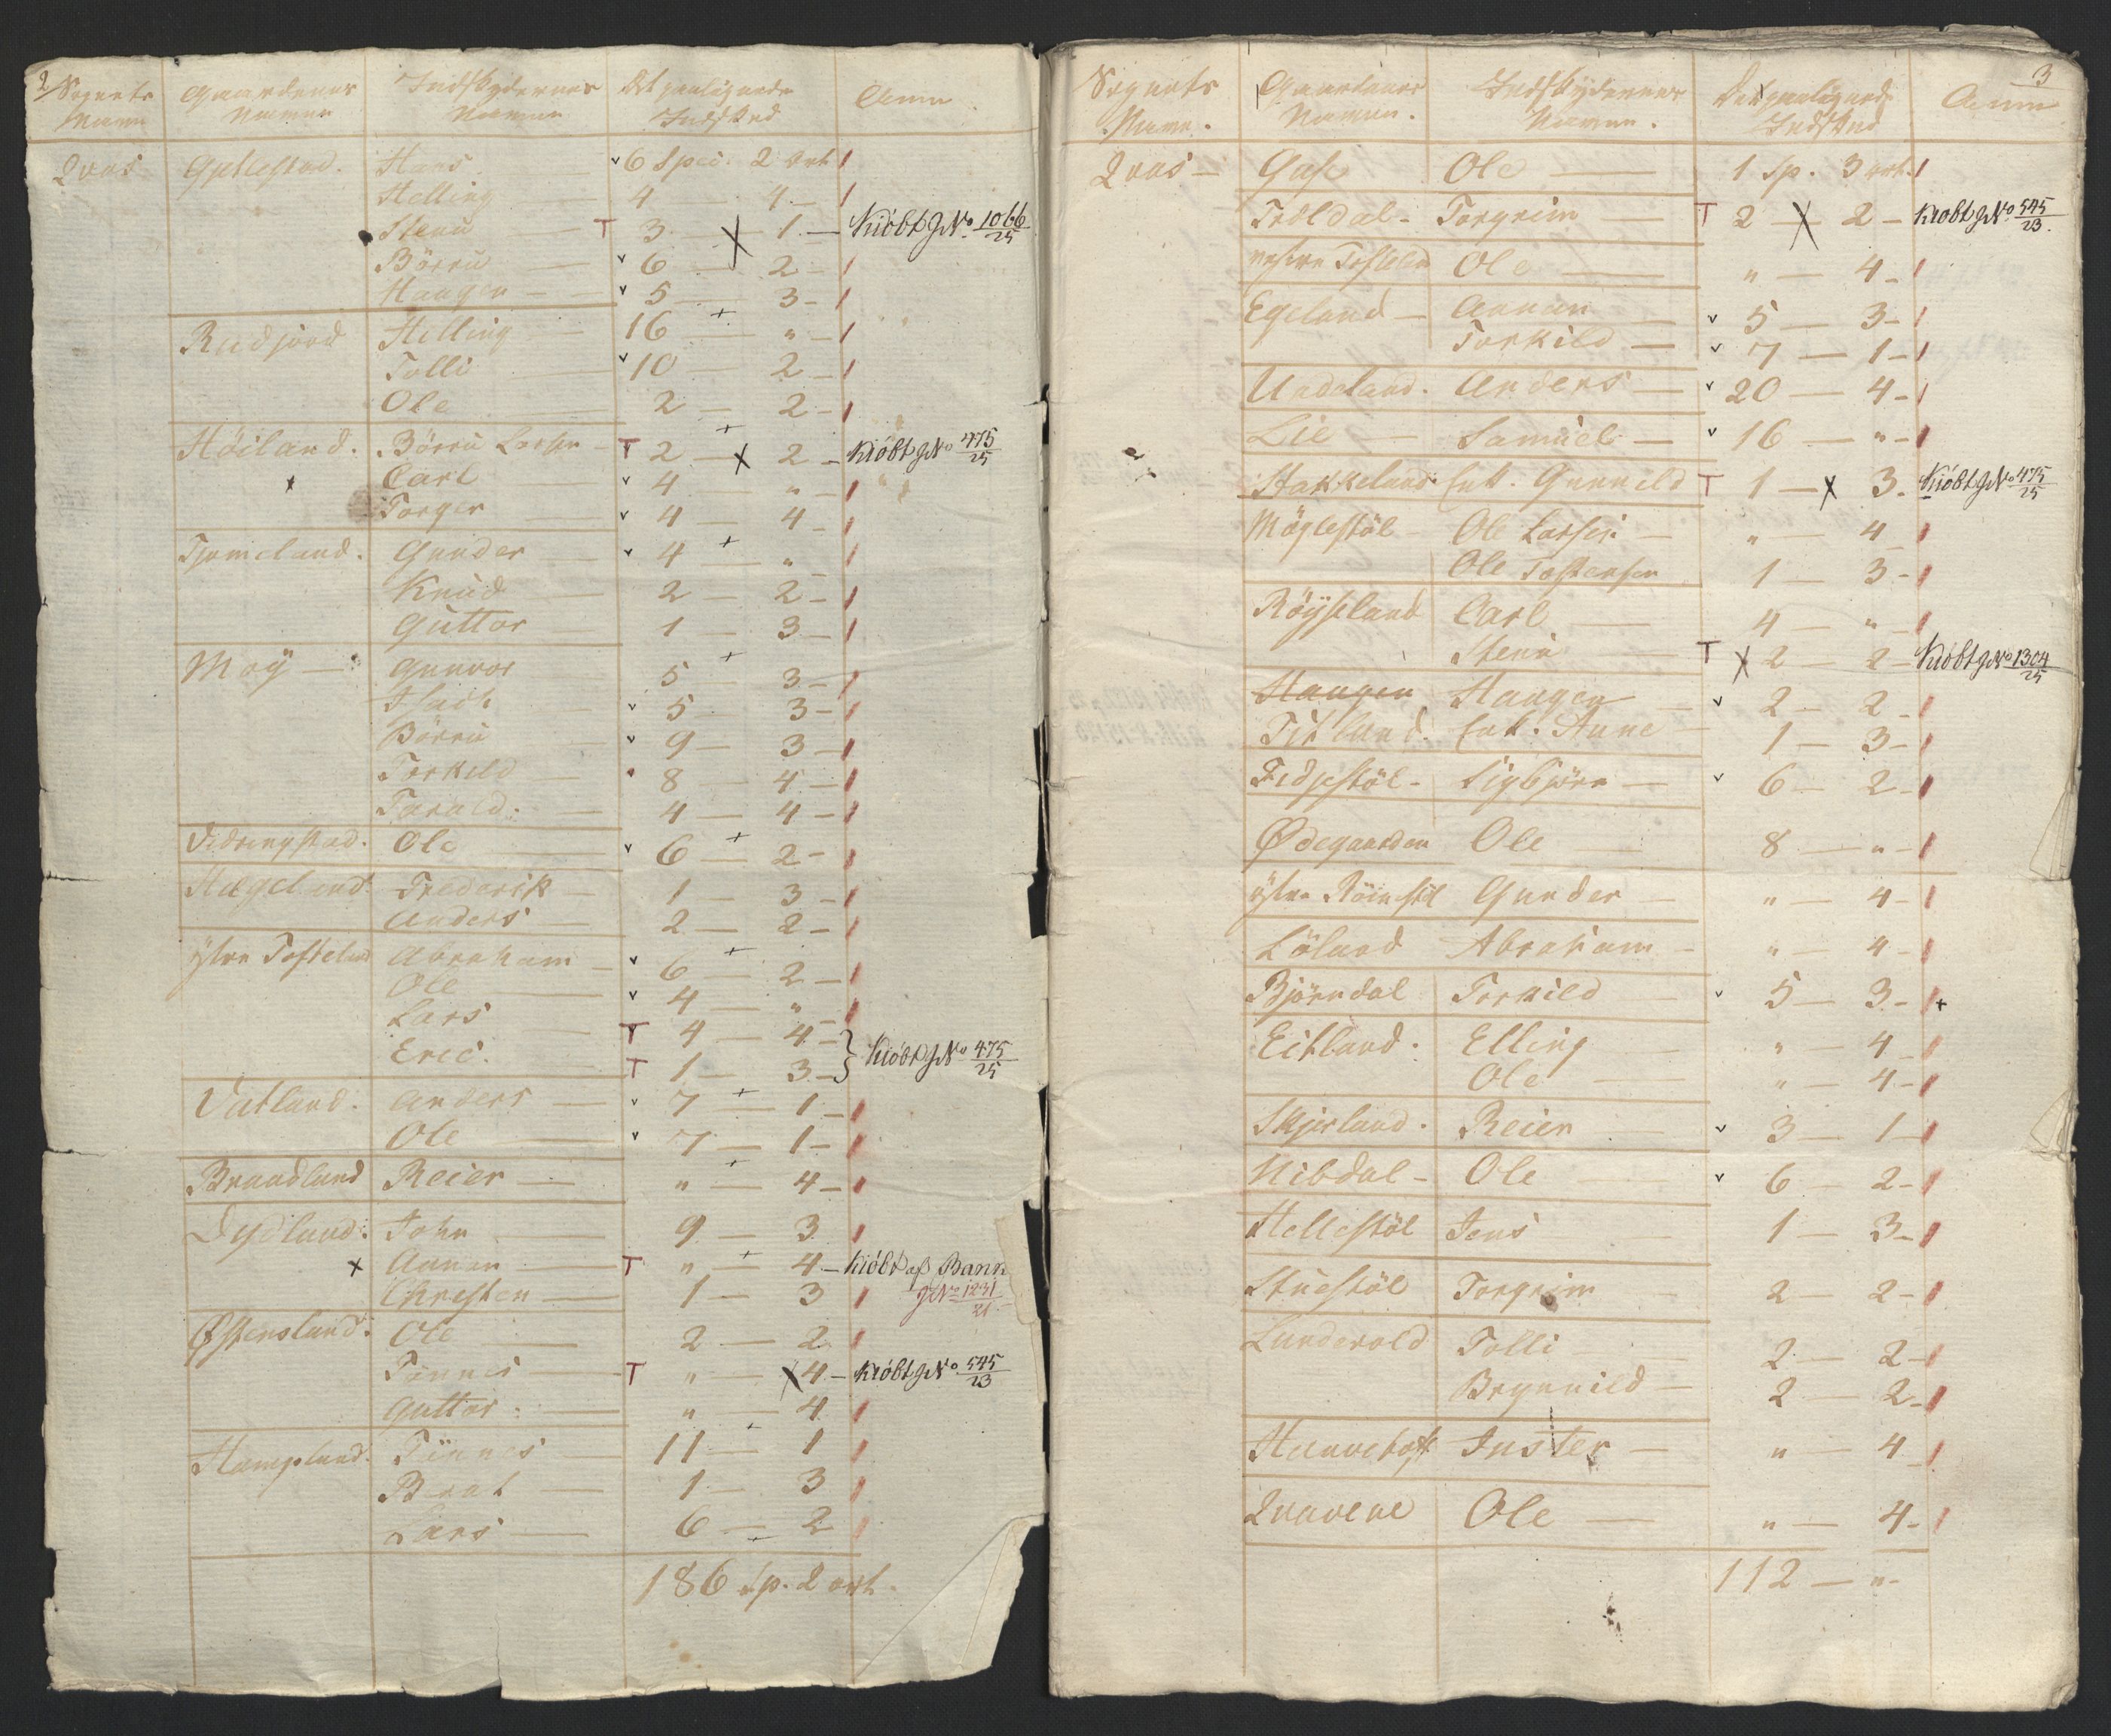 2
Sognets Gaardenes Indskydernes Det paalignede Anm
Navn Navne Navne Indskud
Qvas Gytlestad. Hans v 6 Speci. 2 Ort
Helling 4 — 4 —
Steen T 3 — X 1 — Kiöbt J No 1066/25
Börre v 6 — 2 —
Haagen — v 5 — 3 —
Rudjord Helling — 16 — " —
Tolli v 10 — 2 —
Ole 2 — 2 —
Höiland. Börre Larsen — T 2 — X 2 — Kiöbt J No 475/25
x Carl v 4 — " —
Torger v 4 — 4 —
Tjomeland. Gunder — v 4 — "
Knud 2 — 2 —
Guttor 1 — 3 —
Moÿ — Gunvor 5 — 3 —
v 5 — 3 —
Börre v 9 — 3 —
Torkild 8 — 4 —
Tarald. 4 — 4 —
Vidringstad. Ole v 6 — 2 —
Hægeland. Frederik — 1 — 3 —
Anders 2 — 2 —
ÿstre Tosteland Abraham — v 6 — 2 —
Ole v 4 — " —
Lars T 4 — 4 —
Eric. T 1 — 3 — } Kiöbt J No 475/25
Vatland. Anders — v 7 — 1 —
Ole v 7 — 1 —
Brandland Reier — " — 4 —
Dydland. John 9 — 3
x Aanen T " — 4 — Kiöbt af Bann
Christen 1 — 3 J No 1231/21
Östensland. Ole 2 — 2
Tönnes T " — X 4 — Kiöbt J No 545/23
Guttor. " — 4
Hompland. Tönnes 11 — 1
Berat 1 — 3
Lars 6 — 2
186 Sp. 2 ort.
3
Sognets Gaardenes Indskydernes Det paalignede Anm
Navn. Navne. Navne. Indskud
Qvas — Gase Ole — 1 Sp. 3 ort.
Troldal — Torgrim T 2 X 2 — Kiöbt J No 545/23.
vestre Tosteland Ole — " — 4 —
Egeland — Aanen v 5 — 3 —
Torkild — v 7 — 1 —
Undeland. Anders — v 20 — 4 —
Lie — Samuel — v 16 — " —
Stakkeland Enk. Gunnild T 1 — X 3 . Kiöbt J No 475/25
Möglestöl Ole Larsen — " — 4
Ole Tostensen 1 — 3 —
Röÿseland Carl — 4 — " —
Steen T X 2 — 2 — Kiöbt J No 1304/25
Haugen Haagen v 2 — 2
Titland. Enk. Anne 1 — 3 —
Fidjestöl — Sigbjörn — v 6 — 2 —
Ödegaarden Ole — 8 — " —
ÿstre Röinstöl Gunder — " — 4 —
Löland Abraham — " — 4 —
Björndal Torkild v 5 — 3 — +
Eitland. Elling " — 4
Ole — " — 4 —
Skjerland. Reier — v 3 — 1 —
Nibdal — Ole v 6 — 2 —
Hellestöl Jens 1 — 3 —
Stuestöl Torgrim — 2 — 2 —
Lundevold Tolli — 2 — 2 —
Brynnild — 2 — 2 —
Juster — " — 4
Qvavene Ole — " — 4 —
112 — " —